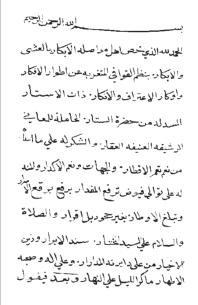 بسم الله الرحمن الرحيم
الحمد لله الذي خص اهل مواصلة الابكار بالعشي
والابكار. بنظم القوافي المتغربه عن اطوار الافكار
واوكار الاعتراف والافكار. ذات الاستار
المسدله من حضرة الستار. الحاملة للمعاني
الرشيقه العنيفه العقار. والشكر له علي ما انشا
من نعم تعم الاقطار. والجهات ونعم الاكدار
له علي توالي فيوض ترفع المقدار برفع برقع
وتبلغ الاوطار بغير جحود بل اقرار والصلاة
والسلام علي السيد المختار. سند الابرار وزين
الاخيار من علي دايرته المدار. وعلي اله وصحبه
الاطهار ما كر الليل علي النهار وبعد فيقول